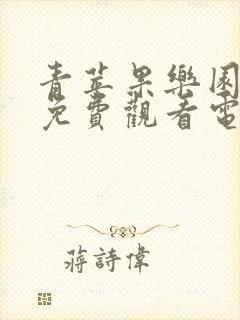 青苹果樂園
免費觀看電
蔣詩偉